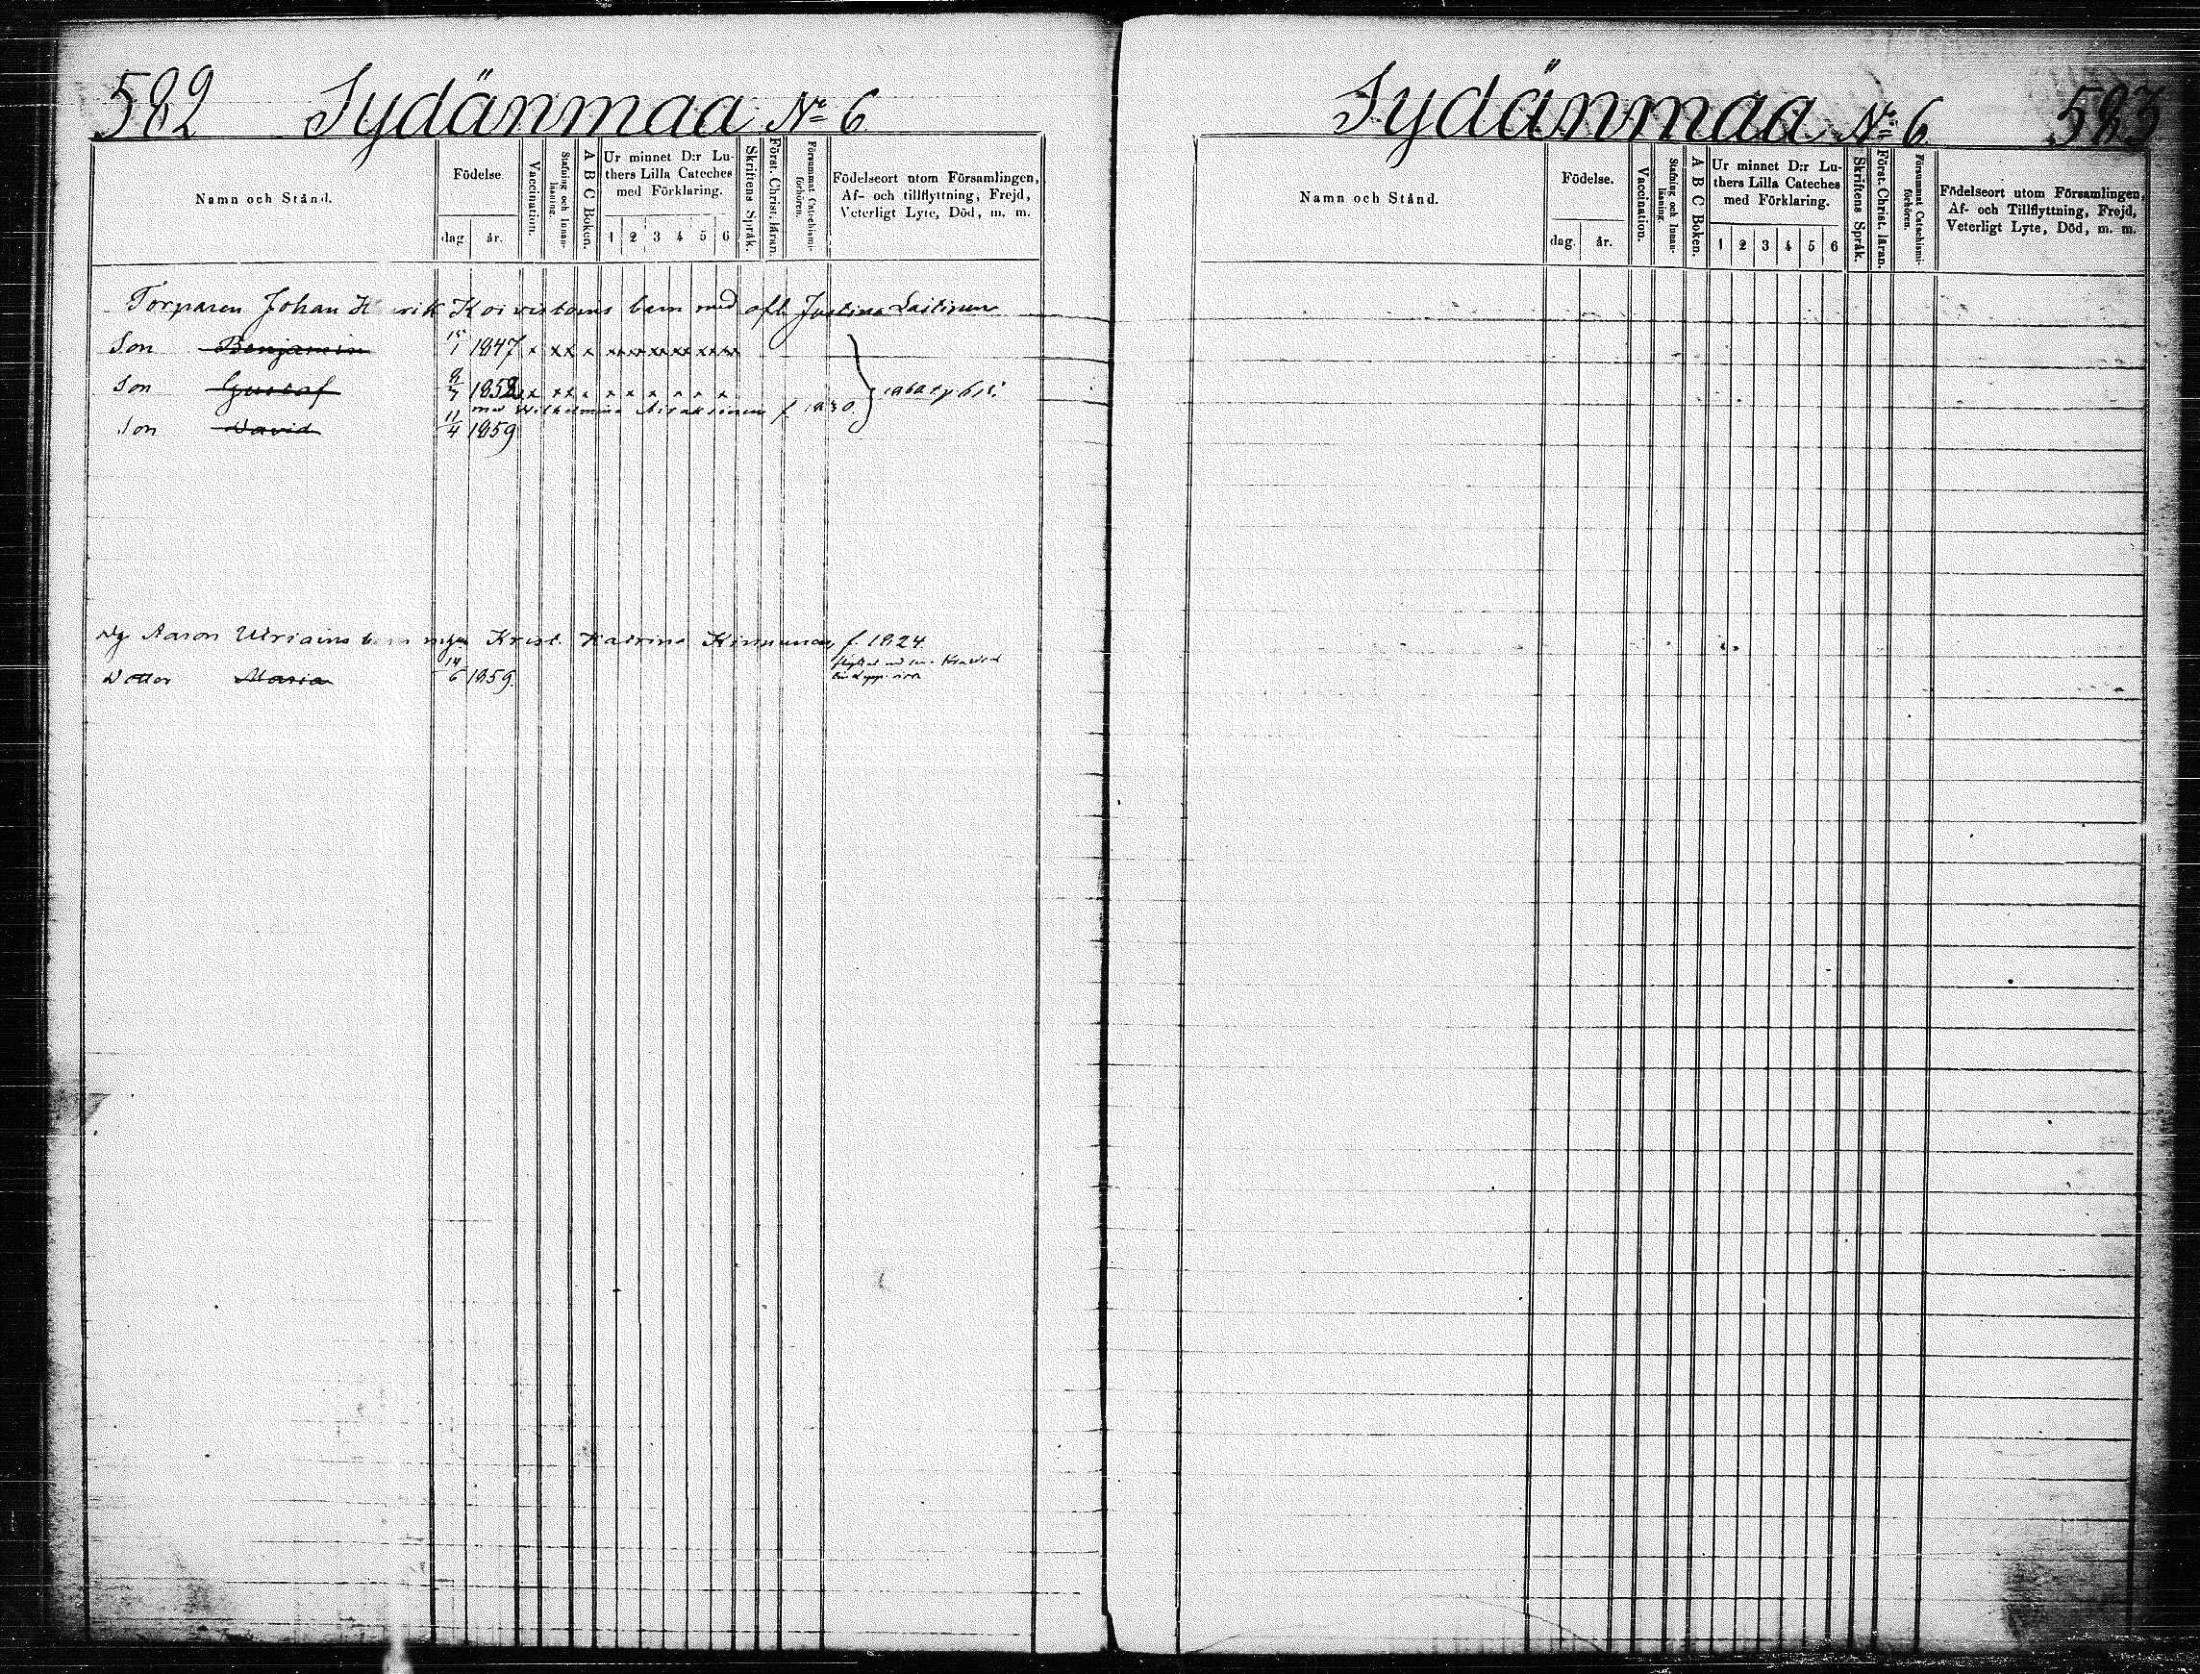 582 Sydänmaa No 6
Namn och Stånd.
Födelse.
dag år.
Vaccination.
Stafning och Innanläsning.
A B C Boken.
Ur minnet D:r Lu-
thers Lilla Cateches
med Förklaring.
1 2 3 4 5 6
Skriftens Språk.
Först. Christ. läran.
Försummat Catechismi-
förhören.
Födelseort utom Församlingen,
Af- och tillflyttning, Frejd,
Veterligt Lyte, Död, m. m.
Torparen Johan Koivistoins barn med afl. Justina Laitinen
Son Benjamin 15/1 1847 x xx x xx xx xx xx xx xx
Son Gustaf 1852 x xx x x x x x x x
med Wilhelmina f. 1830.
Son David 11/4 1859
Aaron Krist. Katrina Kinnunen f. 1824
Dotter Maria 14/6 1859.
Sydänmaa No 6 583
Namn och Stånd.
Födelse.
dag. år.
Vaccination.
Stafning och Innan-
läsning.
A B C Boken.
Ur minnet D:r Lu-
thers Lilla Cateches
med Förklaring.
1 2 3 4 5 6
Skriftens Språk.
Först. Christ. läran.
Försummat Catechismi-
förhören.
Födelseort utom Församlingen,
Af- och Tillflyttning, Frejd,
Veterligt Lyte, Död, m. m.